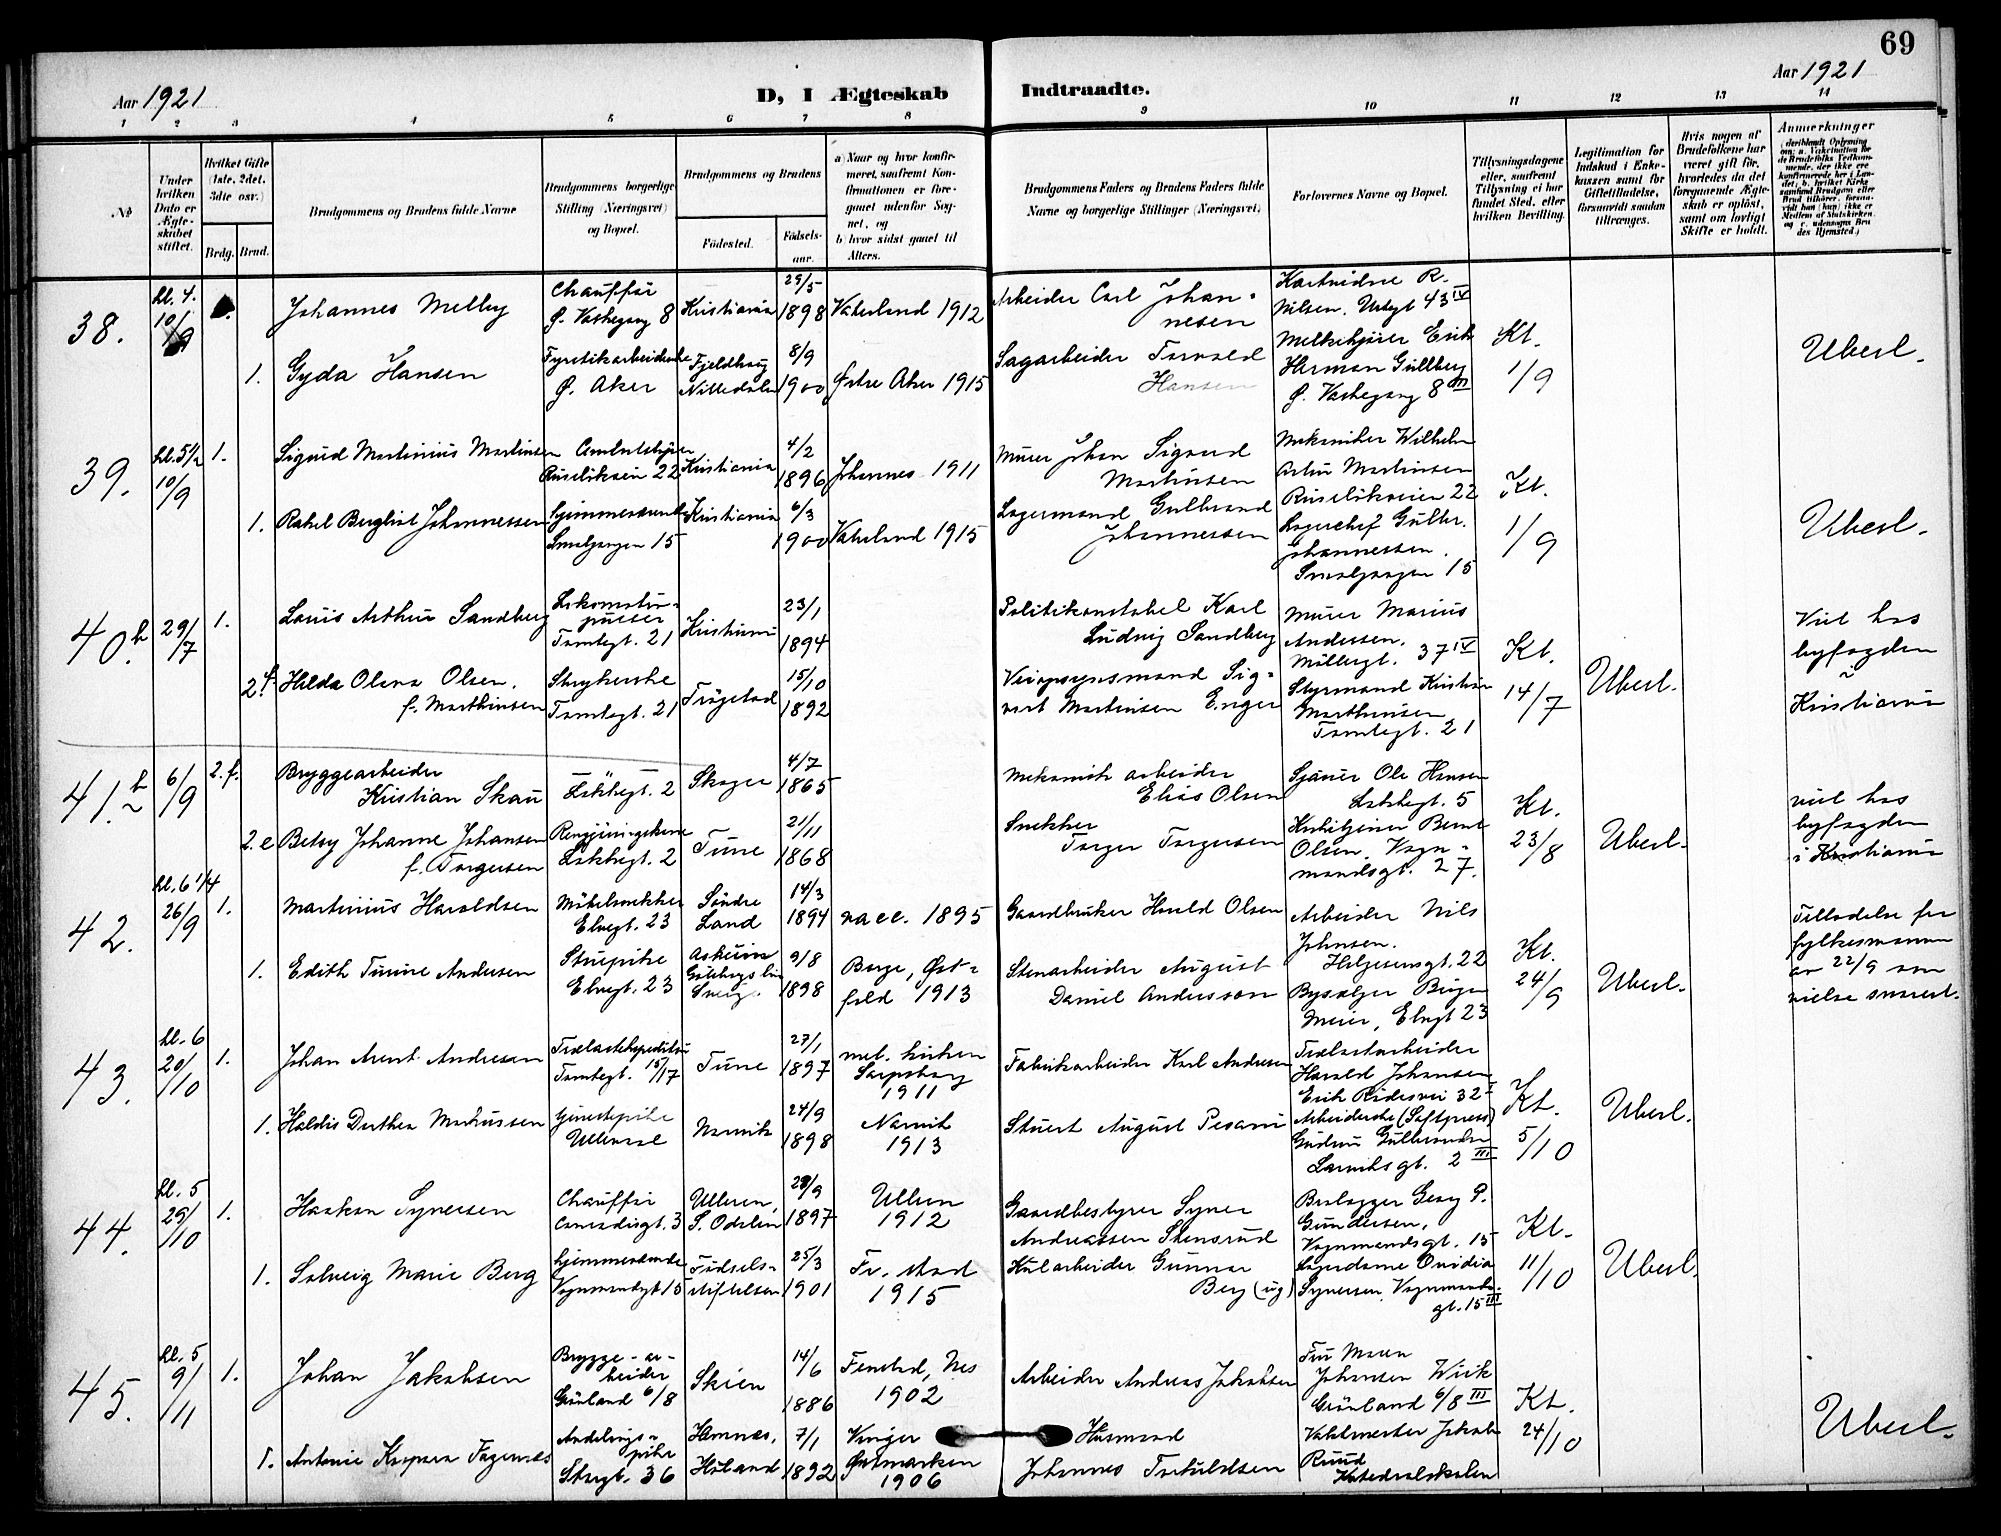 69
Aar 1921
D, I Ægteskab Indtraadte.
Aar 1921
1 2 3 4 5 6 7 8 9 10 11 12 13 14
No.
Under hvilken Dato er Ægteskabet stiftet.
Hvilket Gifte (1ste, 2det, 3die osv.)
Brdg. Brud.
Brudgommens og Brudens fulde Navne
Brudgommens borgerlige Stilling (Næringsvei) og Bopæl.
Brudgommens og Brudens
Födested.
Födsels-aar.
a) Naar og hvor konfirmeret, saafremt Konfirmationen er foregaaet udenfor Sognet, og
b) hvor sidst gaaet til Alters.
Brudgommens Faders og Brudens Faders fulde Navne og borgerlige Stillinger (Næringsvei)
Forlovernes Navne og Bopæl.
Tillysningsdagene eller, saafremt Tillysning ei har fundet Sted, efter hvilken Bevilling.
Legitimation for Indskud i Enkekassen samt for Giftetilladelse, forsaavidt saadan tiltrænges.
Hvis nogen af Brudefolkene har været gift för, hvorledes da det foregaaende Ægteskab er oplöst, samt om lovligt Skifte er holdt.
Anmerkninger
38.
kl. 4.
10/9
Johannes Melby
Chauffør
Ø. Vaskegang 8
Kristiania
29/5
1898
Vaterland 1912
Arbeider Carl Johan-
nesen
Nilsen, Urtegt 43 IV
1.
Gyda Hansen
Ø. Aker
Nittedalen
8/9
1900
Østre Aker 1915
Sagarbeider Torvald
Hansen
Melkekjører Erik
Herman Gullberg
Ø. Vaskegang 8 III
Kt.
1/9
Uberl.
39.
kl. 5 1/2
10/9
1.
Sigurd Martinius Martinsen
Ruseløkveien 22
Kristiania
4/2
1896
Johannes 1911
Murer Johan Sigurd
Martinsen
Mekaniker Wilhelm
Artur Martinsen
Ruseløkveien 22
1.
Rakel Bergliot Johannessen
Hjemmeværende
Smalgangen 15
Kristiania
6/3
1900
Vaterland 1915
Lagermand Gulbrand
Johannessen
Lagerchef Gulbr.
Johannessen.
Smalgangen 15
Kt.
1/9
Uberl.
40.b
29/7
1.
Louis Arthur Sandberg
Lokomotiv-
pusser
Tomtegt. 21
Kristiania
23/1
1894
Politikonstabel Karl
Ludvig Sandberg
Murer Marius
Andersen.
Møllergt. 37 IV
2 f.
Hilda Olava Olsen.
f. Marthinsen
Strykerske
Tomtegt. 21
Trøgstad
15/10
1892
Veiopsynsmand Sig-
vart Martinsen Enger
Styrmand Kristian
Marthinsen
Tomtegt. 21
Kt.
14/7
Uberl.
Viet hos
byfogden
i
Kristiania
41.b
6/9
2. f.
Bryggearbeider
Kristian Skau
Lakkegt. 2
Skoger
4/7
1865
Mekanisk arbeider
Elias Olsen
Sjauer Ole Hansen
Lakkegt. 5
2. e
Betsy Johanne Johansen
f. Torgersen
Lakkegt. 2
Tune
21/11
1868
Snekker
Torger Torgersen
Olsen, Vogn-
mandsgt. 27.
Kt.
23/8
Uberl.
viet hos
byfogden
i Kristiania
42.
kl. 6 1/4
26/9
1.
Martinius Haraldsen
Møbelsnekker
Elvegt. 23
Søndre
Land
14/3
1894
vacc. 1895
Gaardbruker Harald Olsen
Arbeider Nils
Johnsen.
Helgesensgt. 22
1.
Edith Tunne Andersen
Stuepike
Elvegt. 23
Askum
Göteborgs län
Sverige
9/8
1898
Borge, Øst-
fold 1913
Stenarbeider August
Daniel Andersson
Bysælger Birger
Meier, Elvegt 23
Kt.
24/9
Uberl.
Tilladelse fra
fylkesmannen
av 22/9 om
vielse snarest.
43.
kl. 6
20/10
1.
Johan Arent Andresen
Tomtegt. 15/17
Tune
27/1
1897
met. kirken
Sarpsborg
1911
Fabrikarbeider Karl Andresen
Trælastarbeider
Harald Johansen
32 I
1.
Haldis Dorthea Markussen
Ullevaal
Narvik
24/9
1898
Narvik
1913
Stuert August Pesani
Arbeiderske (Saftpress)
Gudrun Gulbrandsen
Larviksgt. 2 III
Kt.
5/10
Uberl.
44.
kl. 5
29/10
1.
Haakon Synersen
Chauffør
Ulleren,
S. Odalen
28/9
1897
Ullern
1912
Gaardbestyrer Syner
Andreassen Stensrud
Georg P.
Gundersen,
Vognmandsgt. 15
1.
Solveig Marie Berg
Hjemmeværende
Vognmandsgt 15
Fødsels-
stiftelsen
25/3
1901
Fr. stad
1915
Kularbeider Gunnar
Berg (ug)
Lagerdame Ovidia
Synersen, Vognmands-
gt. 15 III
Kt.
11/10
Uberl.
45.
kl. 5
9/11
1.
Johan Jakobsen
Brygge-ar-
beider
Grønland 6/8
Skien
14/6
1886
Fenstad, Nes
1902
Arbeider Andreas Jakobsen
Fru Maren
Johansen Wiik
Grønland 6/8 III
1.
Antonie Kaspara Fagernæs
Anderings-
pike
Storgt. 36
Hemnes,
Høland
7/1
1892
Vinger
Østmarken
1906
Husmand
Johannes Torkildsen
Vaktmester Jakob
Ruud
Katedralskolen
Kt.
24/10
Uberl.